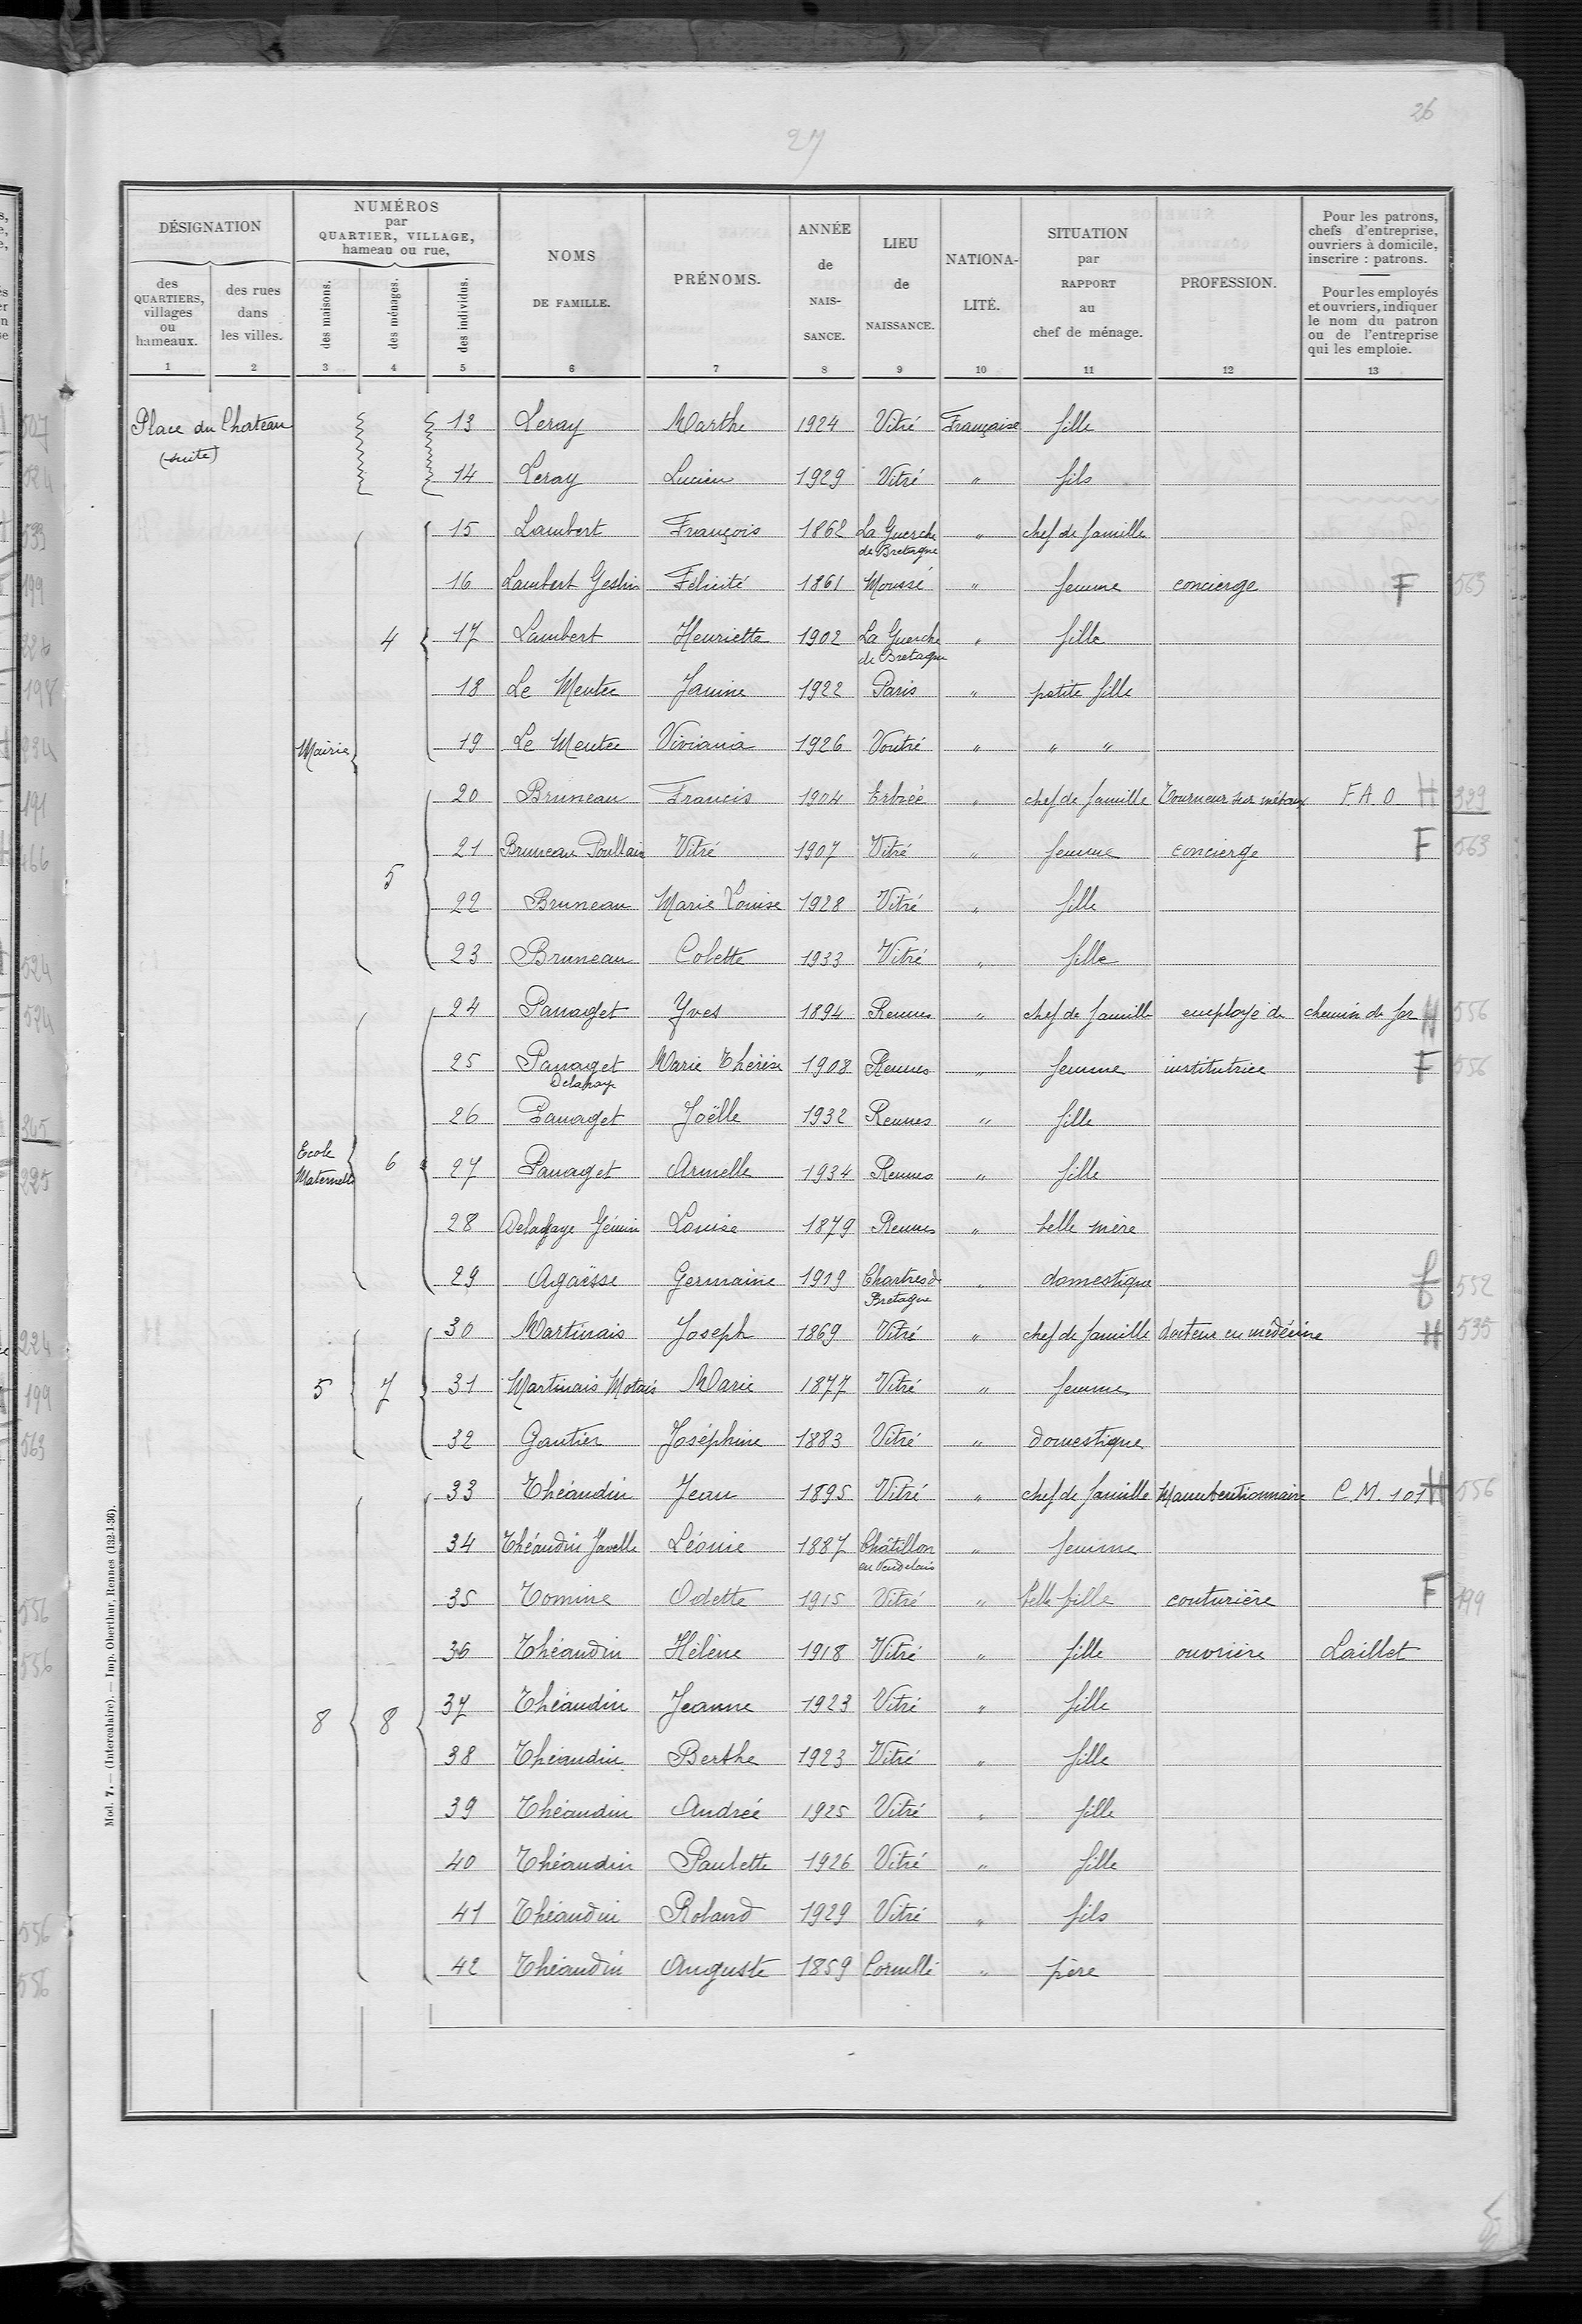 26
27
DÉSIGNATION
des QUARTIERS, villages ou hameaux.
des rues dans les villes.
NUMÉROS par QUARTIER, VILLAGE, hameau ou rue,
des maisons.
des ménages.
des individus.
NOMS DE FAMILLE.
PRÉNOMS.
ANNÉE de NAIS-SANCE.
LIEU de NAISSANCE.
NATIONA-LITÉ.
SITUATION par RAPPORT au chef de ménage.
PROFESSION.
Pour les patrons, chefs d'entreprise, ouvriers à domicile, inscrire : patrons.
Pour les employés et ouvriers, indiquer le nom du patron ou de l'entreprise qui les emploie.
1 2 3 4 5 6 7 8 9 10 11 12 13
Place du Chateau 13 Leray Marthe 1924 Vitré Française fille
(suite) 14 Leray Lucien 1929 Vitré " fils
15 Lambert François 1862 La Guerche de Bretagne " chef de famille
16 Lambert Geslin Félicité 1861 Moussé " femme concierge F 563
4 17 Lambert Henriette 1902 La Guerche de Bretagne " fille
18 Le Mentec Janine 1922 Paris " petite fille
Mairie 19 Le Mentec Viviana 1926 Voutré " " "
20 Bruneau Francis 1904 Erbrée " chef de famille Tourneur sur métaux F A O H 339
21 Bruneau Poullain Vitré 1907 Vitré " femme concierge F 563
5 22 Bruneau Marie Louise 1928 Vitré " fille
23 Bruneau Colette 1933 Vitré " fille
24 Panaget Yves 1894 Rennes " chef de famille employé de chemin de fer H 556
25 Panaget Delahaye Marie Thérèse 1908 Rennes " femme institutrice F 556
26 Panaget Joëlle 1932 Rennes " fille
Ecole Maternelle 6 27 Panaget Armelle 1934 Rennes " fille
28 Delahaye Louise 1879 Rennes " belle mère
29 Agaësse Germaine 1919 Chartres de Bretagne " domestique 552
30 Martinais Joseph 1869 Vitré " chef de famille docteur en médécine H 535
5 7 31 Martinais Motais Marie 1877 Vitré " femme
32 Gautier Joséphine 1883 Vitré " domestique
33 Théaudin Jean 1895 Vitré " chef de famille Manutentionnaire C.M. 101 H 556
34 Théaudin Javelle Léonie 1887 Châtillon en Vendelais " femme
35 Tomine Odette 1915 Vitré " belle fille couturière F 199
36 Théaudin Hélène 1918 Vitré " fille ouvrière Laillet
8 8 37 Théaudin Jeanne 1923 Vitré " fille
38 Théaudin Berthe 1923 Vitré " fille
39 Théaudin Andrée 1925 Vitré " fille
40 Théaudin Paulette 1926 Vitré " fille
41 Théaudin Roland 1929 Vitré " fils
42 Théaudin Auguste 1859 Cornillé " père
Mod. 7. — (Intercalaire). — Imp. Oberthur, Rennes (132-1-36).